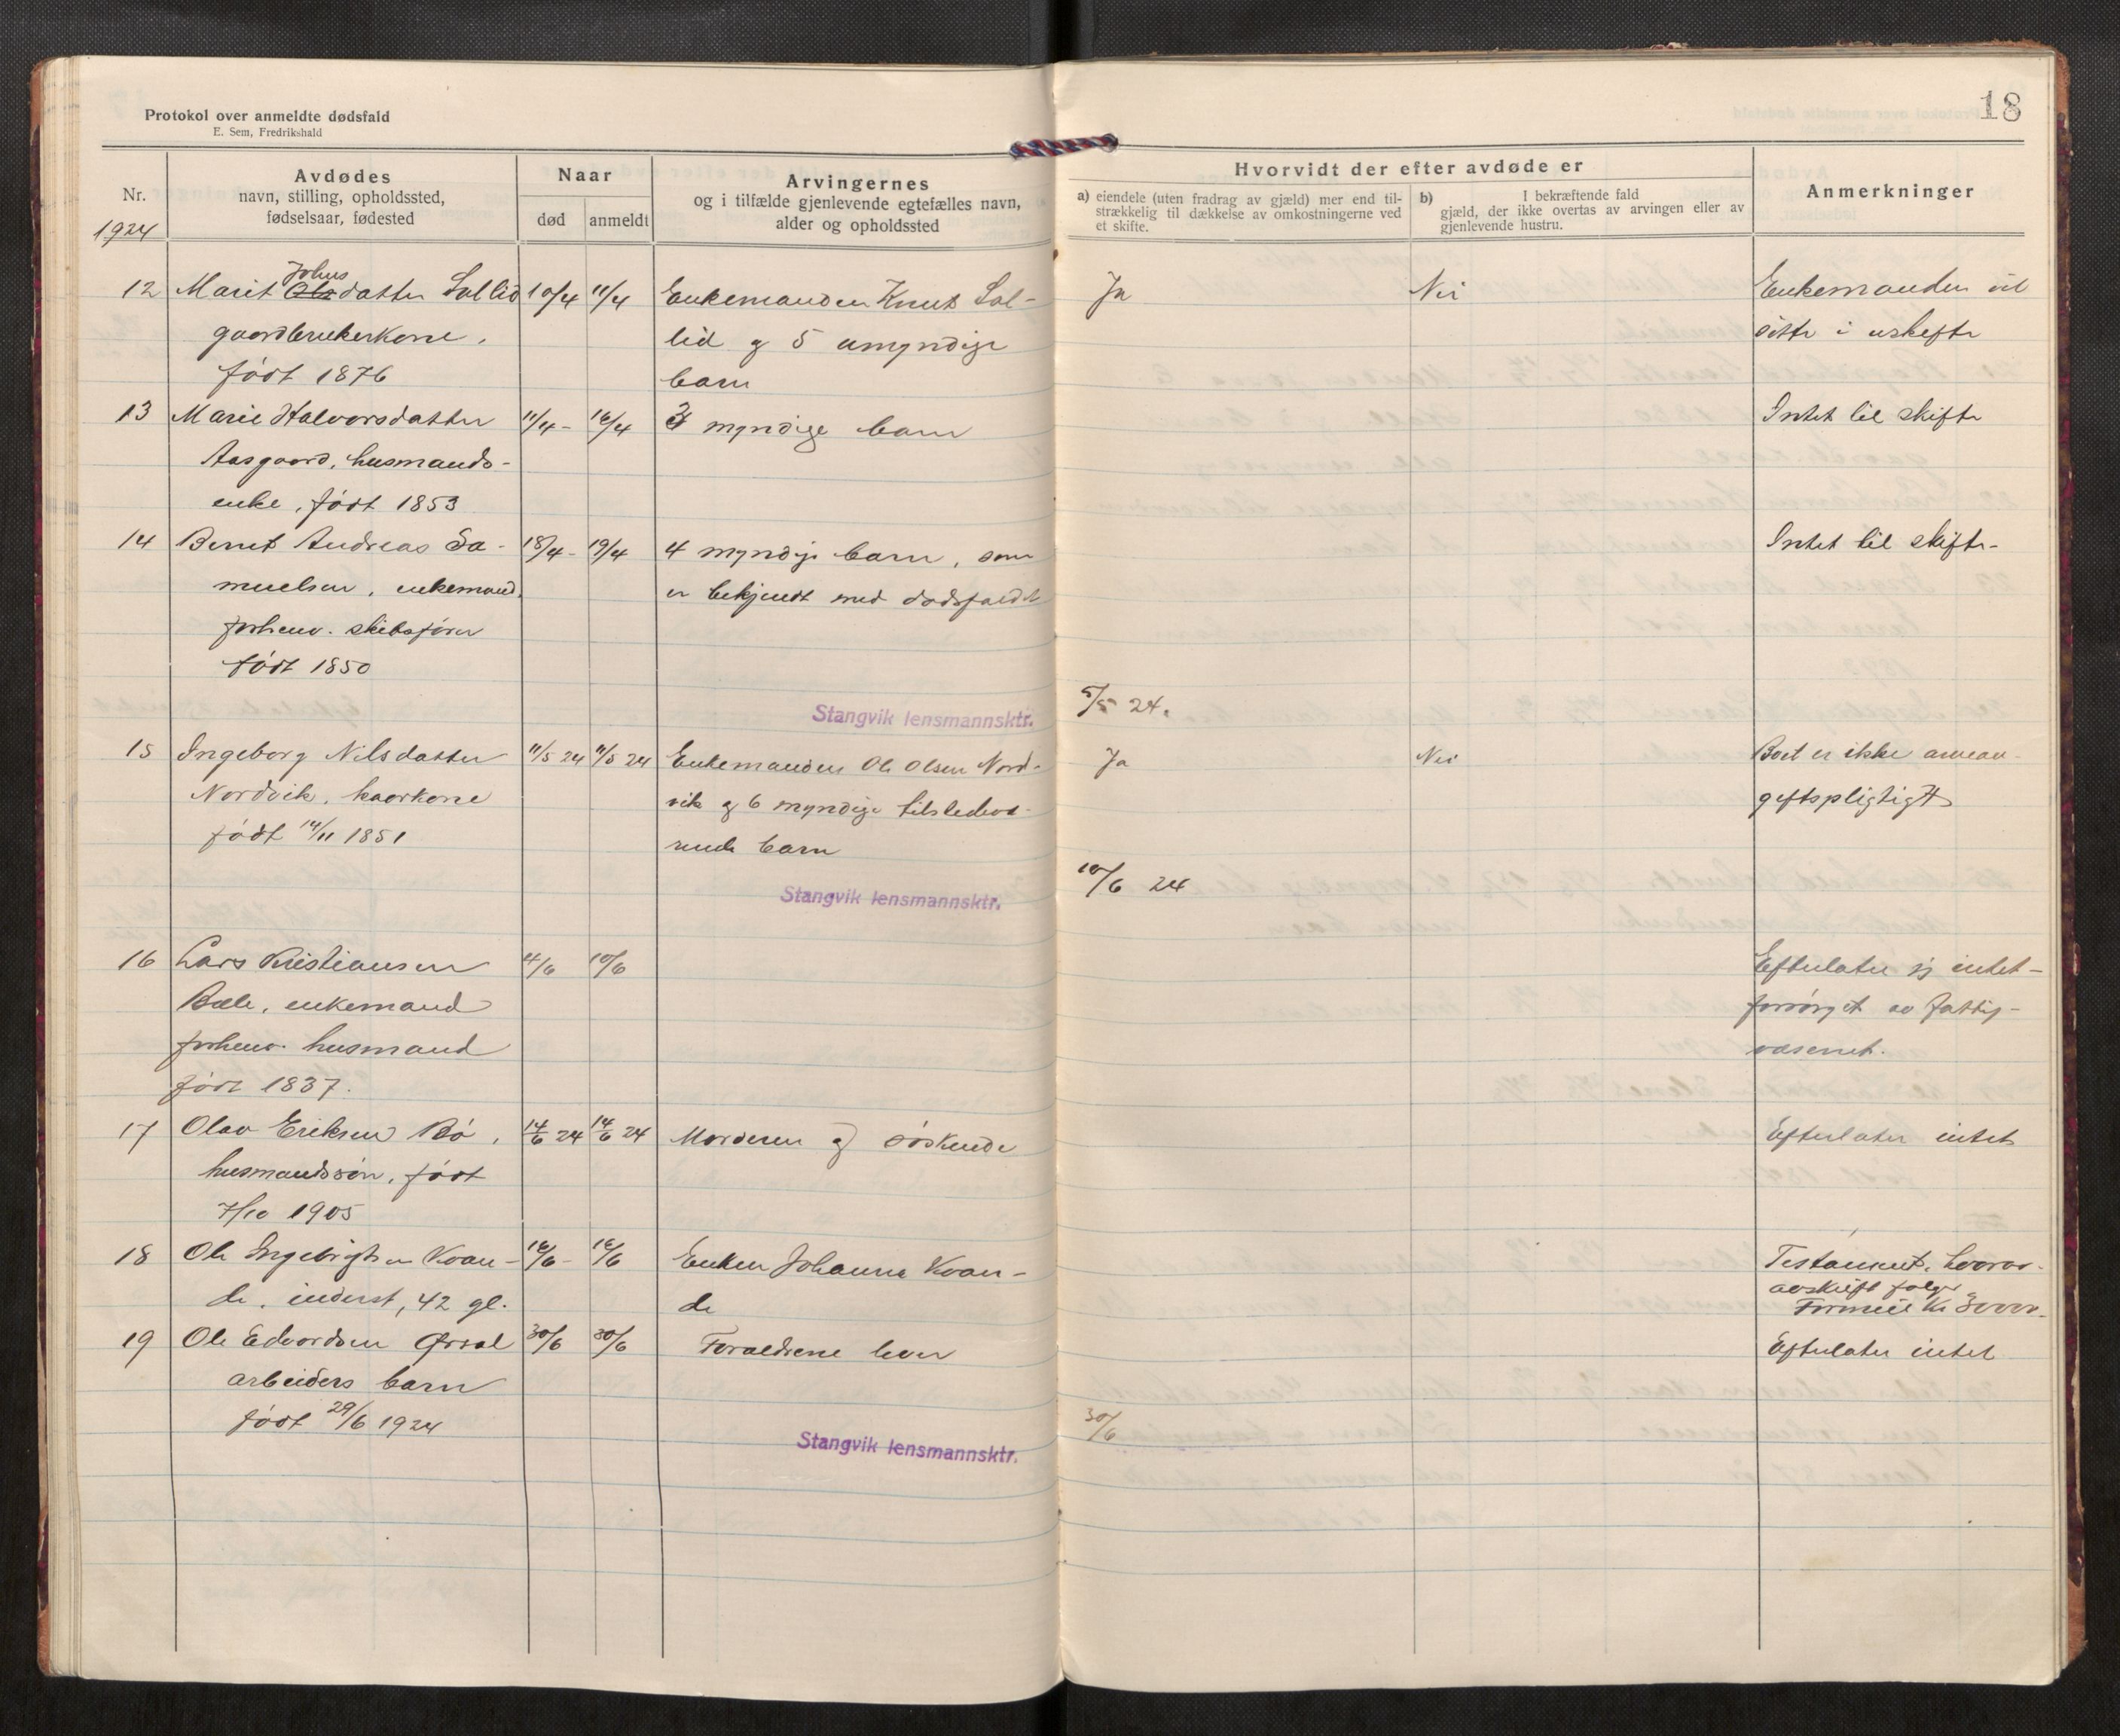 Protokol over anmeldte dødsfald
E. Sem, Fredrikshald
18
Nr.
1924
Avdødes
navn, stilling, opholdssted,
fødselsaar, fødested
Naar
død
anmeldt
Arvingernes
og i tilfælde gjenlevende egtefælles navn,
alder og opholdssted
Hvorvidt der efter avdøde er
a) eiendele (uten fradrag av gjæld) mer end til-
strækkelig til dækkelse av omkostningerne ved
et skifte.
b) I bekræftende fald
gjæld, der ikke overtas av arvingen eller av
gjenlevende hustru.
Anmerkninger
Johns
12 Marit datter Sollid 10/4 11/4 Enkemanden Knut Sol- Ja Nei Enkemanden vil
gaardbrukerkone, lid og 5 umyndige sitte i uskifte
født 1876 barn
13 Marie Halvorsdatter 11/4- 16/4 3 myndige barn Intet til skifte
Aasgaard, husmands-
enke, født 1853
14 Bernt Andreas Sa- 18/4- 19/4 4 myndige barn, som Intet til skifte-
muelsen, enkemand, er bekjendt med dødsfaldet
forhenv. skibsfører
født 1850
Stangvik lensmannsktr. 5/5 24.
15 Ingeborg Nilsdatter 11/5 24 11/5 24 Enkemanden Ole Olsen Nord- Ja Nei Boet er ikke arveav-
Nordvik, kaarkone vik og 6 myndige tilstedevæ- giftspligtigt
født 14/11 1851 rende barn
Stangvik lensmannsktr. 10/6 24
16 Lars Kristiansen 4/6 10/6 Efterlater sig intet-
Bæle, enkemand forsørget av fattig-
forhenv. husmand væsenet.
født 1837.
17 Olav Eriksen Bø, 14/6 24 14/6 24 Morderen og søskende Efterlater intet
husmandssøn, født
7/10 1905
18 Ole Ingebrigtsen Kvan- 16/6- 16/6 Enken Johanna Kvan- Testament, hvorav
de, inderst, 42 gl. de avskrift følger
Formue Kr 3000.-
19 Ole Edvardsen Ørsal 30/6 30/6 Forældrene lever Efterlater intet
arbeiders barn
født 29/6 1924
Stangvik lensmannsktr. 30/6